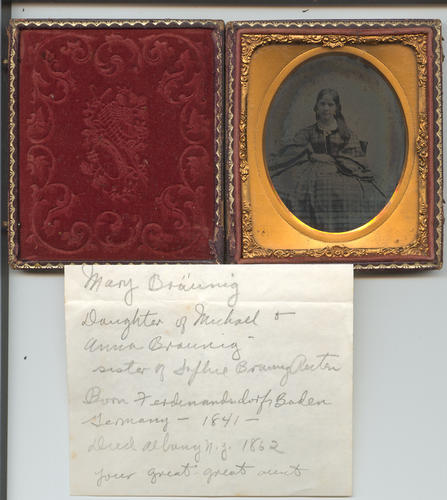 Mary Bräunig
Daughter of Michael &
Anna Braunig -
sister of Sophie Braunig Reuter
Born Ferdinandsdorf, Baden
Germany - 1841 -
Died Albany N.Y. 1862
your great-great aunt